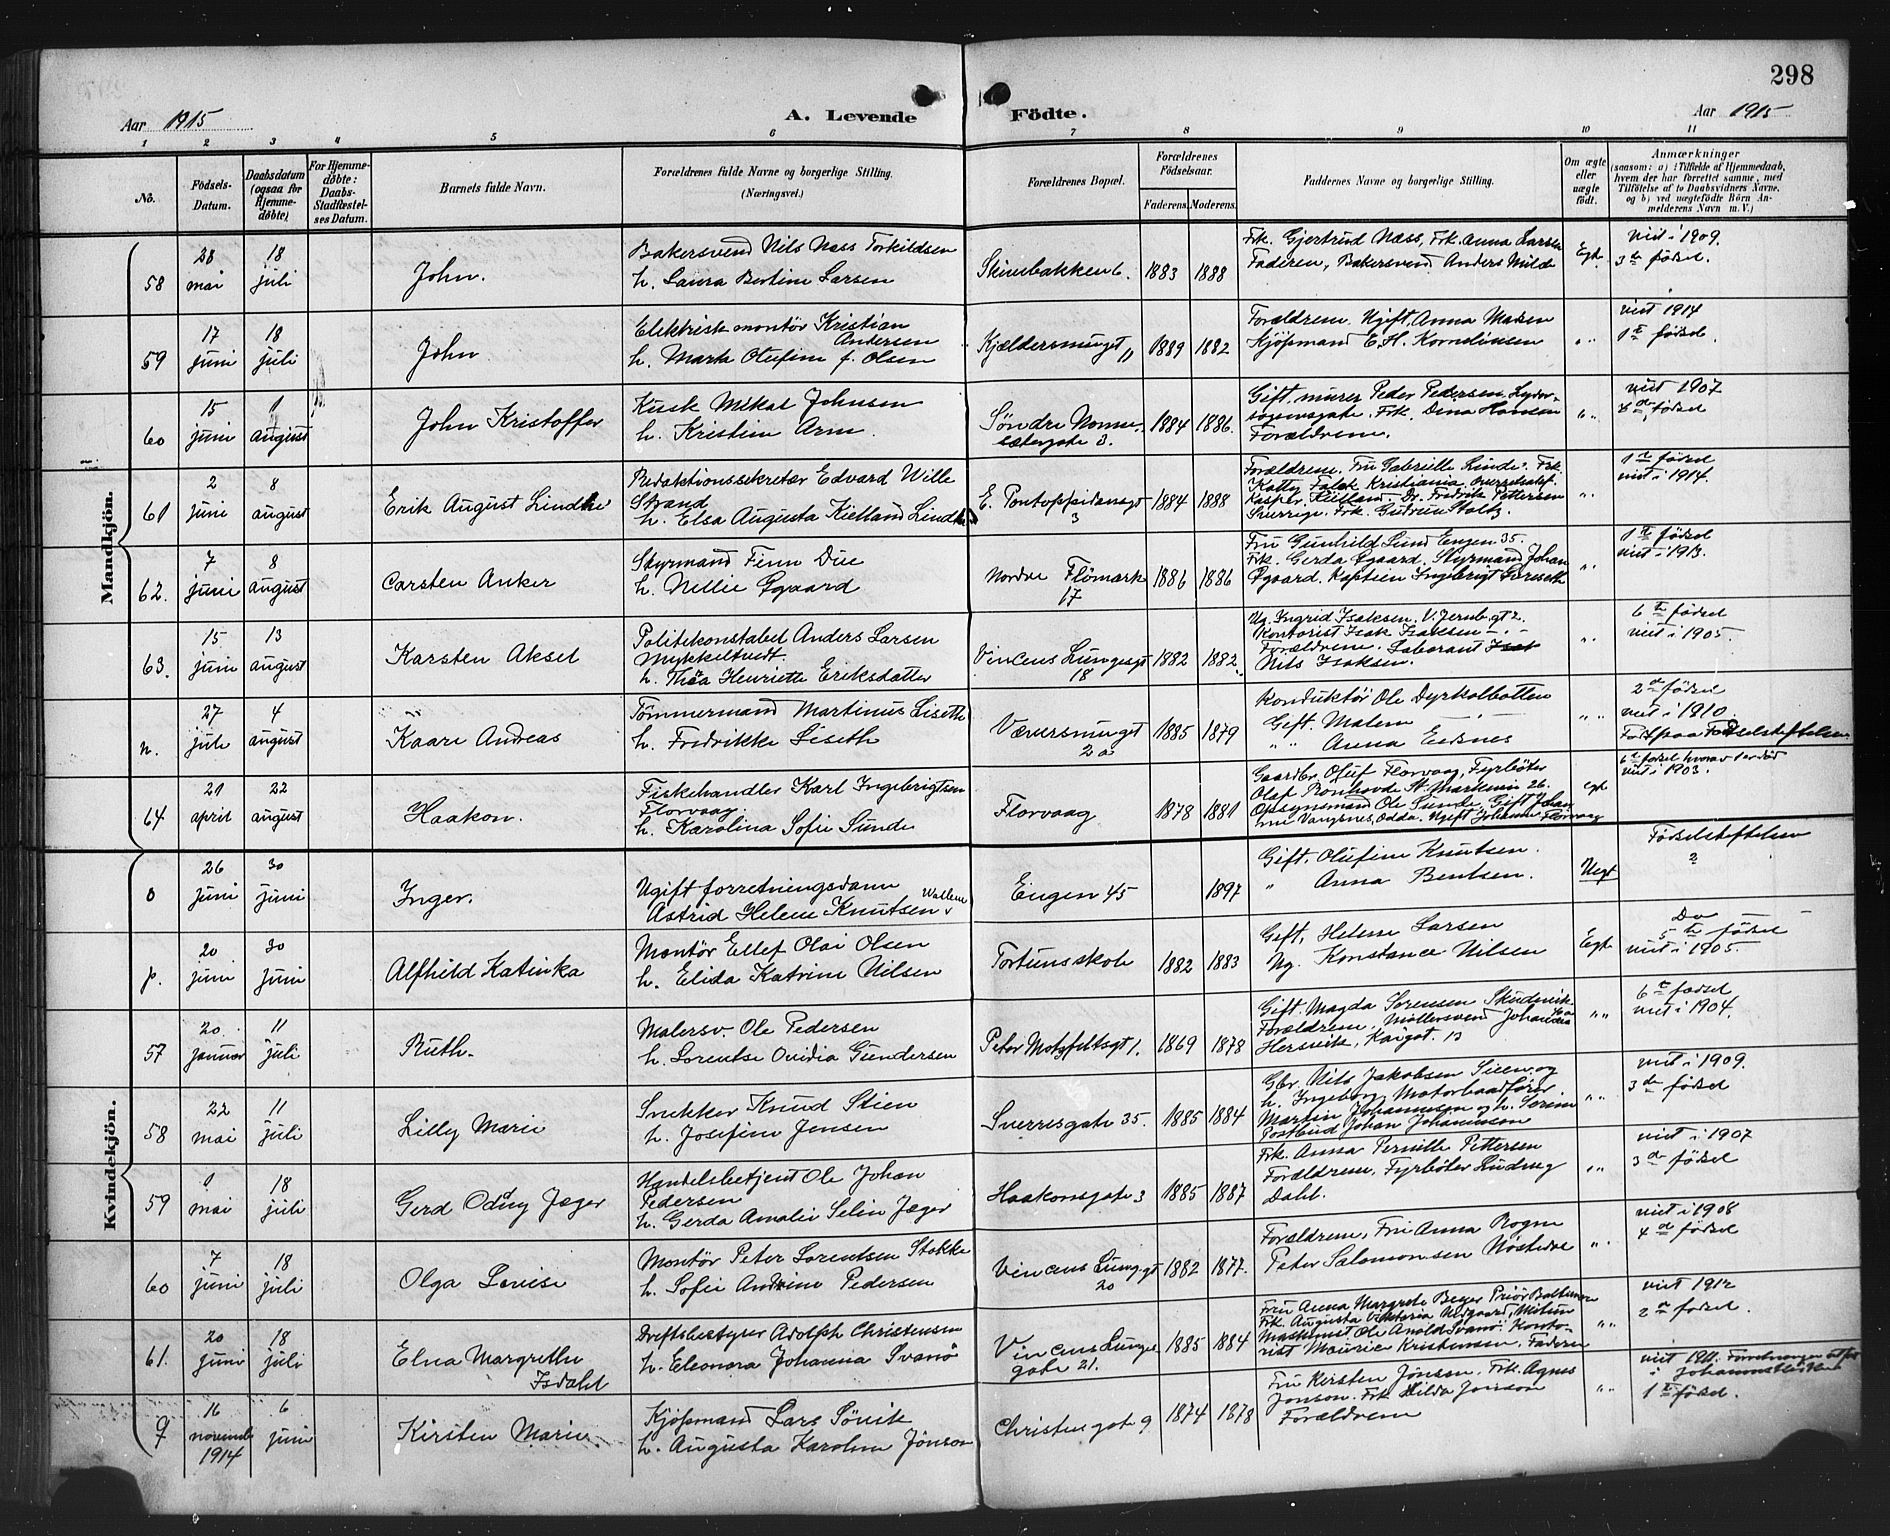 298
Aar 1915
A. Levende Födte.
Aar 1915
1 2 3 4 5 6 7 8 9 10 11
No.
Födsels-Datum.
Daabsdatum (ogsaa for Hjemmedöbte)
For Hjemmedöbte: Daabs-Stadfæstelses Datum.
Barnets fulde Navn.
Forældrenes fulde Navne og borgerlige Stilling. (Næringsvei.)
Forældrenes Bopæl.
Forældrenes Födselsaar.
Faderens. Moderens.
Faddernes Navne og borgerlige Stilling.
Om ægte eller uægte födt.
Anmærkninger
(saasom: a) i Tilfælde af Hjemmedaab, hvem der har forrettet samme, med Tilföielse af to Daabsvidners Navne, og b) ved uægtefödte Börn Anmelderens Navn m. V.)
Mandkjön.
58 28 mai 18 juli John. Bakersvend Nils Næss Torkildsen
h. Laura Bertine Larsen
Skivebakken 6. 1883 1888
Frk. Gjertrud Næss, Frk. Anna Larsen
Faderen, Bakersvend Anders Milde
Egte viet i 1909.
3de fødsel.
59 17 juni 18 juli John Elektrisk montör Kristian Andersen
h. Marta Olufine f. Olsen
Kjældersmuget 11 1889 1882
Forældrene. Ugift Anna Madsen
Kjöpmand C. H. Kornelinssen
" viet 1914
1te fødsel.
60 15 juni 1 august John Kristoffer Kusk Mikal Johnsen
h. Kristine Arm.
Söndre Nonnesætergate 3. 1884 1886.
Gift. murer Peder Pedersen
Frk. Dina Hansen
Forældrene.
" viet 1907
fødsel
61 2 juni 8 august Erik August Lindthe Redaktionssekretær Edvard Wille Strand
h. Elsa Augusta Kielland Lindthe
E. Pontoppidansgt 3 1884 1888
Forældrene. Fru Gabrielle Linde. Frk.
Katty Falck Kristiania
Kasper Kielland. Dr. Fredrik Pettersen
Sverrige. Frk. Gudrun Stoltz.
" 1te fødsel
viet i 1914.
62. 7 juni 8 august Carsten Anker Styrmand Finn Due
h. Nellie Ögaard
Nordre Flömark 17 1886 1886
Fru Gunhild Lund Engen 35.
Frk. Gerda Ögaard. Styrmand Johan
Ögaard. Kaptein Ingebrigt
" 1te fødsel
viet i 1913.
63. 15 juni 13 august Karsten Aksel Politikonstabel Anders Larsen
Mykkeltvedt.
h. Thea Henriette Eriksdatter
Vincens Lungesgt 18 1882 1882
Ug. Ingrid Isaksen, V. Jernb. gt 2.
Kontorist Isak Isaksen
Forældrene. Laborant
Nils Isaksen.
" 6te fødsel
viet i 1905.
n. 27 juli 4 august Kaare Andreas Tömmermand Martinus Liseth
h. Fredrikke Liseth
Væversmuget 2a 1885 1879
Konduktör Ole Dyrkolbotten
Gift. Malene
" " Anna Eidsnes
" " 2de fødsel
viet i 1910.
Født paa Fødselstiftelsen
64 21 april 22 august Haakon. Fiskehandler Karl Ingebrigtsen
Florvaag.
h. Karolina Sofie Sunde
Florvaag 1878 1881
Gaardbr. Oluf Florvaag, Fyrböter
Olaf Ronhovde St. Markevei 26.
Opsynsmand Ole Sunde, Gift Johanne
Vangsnes, Odda. Ugift Johanne Florvaag
egte 6te fødsel hvorav 1 er död
viet i 1903.
Kvindekjön.
o 26 juni 30 juni Inger. Ugift forretningsdame
Astrid Helene Knutsen
Engen 45 1897
Gift. Olufine Knutsen.
" Anna Bentsen.
Uegt Fødselstiftelsen
2
p. 20 juni 30 juni Alfhild Katinka Montör Ellef Olai Olsen
h. Elida Katrine Nilsen
Fortunsskole 1882 1883
Gift, Helene Larsen
Ug. Konstance Nilsen
Egte Do
5te fødsel
viet i 1905.
57 20. januar 11 juli Ruth. Malersv. Ole Pedersen
h. Lorentse Ovidia Gundersen
Peter Motzfeltsgt 1. 1869 1878
Gift. Magda Sørensen Skudevik.
Forældrene, Möllersvend Johannes
Hersvik,
" " 6te fødsel
viet i 1904.
58 22 mai 11 juli Lilly Marie Snekker Knud Stien
h. Josefine Jensen
Sverresgate 35. 1885 1884
Gbr. Nils Jakobsen Stien og
h. Ingeborg, Motorbaadförer
Martin Johannesen og h. Serine
Postbud Johan Johannesson
" " viet i 1909.
3de fødsel
59 1 mai 18 juli Gerd Odny Jæger Handelsbetjent Ole Johan
Pedersen
h. Gerda Amalie Selin Jæger
Haakonsgate 3 1885 1887
Frk. Anna Pernille Pettersen
Forældrene, Fyrböter Ludvig
Dahl.
" " viet i 1907
3de fødsel
60 7 juni 18 juli Olga Lovise Montör Peter Lorentsen Stokke
h. Sofie Andrine Pedersen
Vincens Lung.gt 20 1882 1877.
Forældrene, Fru Anna Rogne
Peter Salomonsen Nöstedre
" viet i 1908
4de fødsel
61. 20 juni 18 juli Elna Margrethe Isdahl Driftsbestyrer Adolph Christensen
h. Eleonora Johanna Svanö
Vincens Lungesgate 21. 1885 1884
Fru Anna Margrete Beyer
Frk. Augusta Viktoria
Maskinist Ole Arnold Svanö. Kontorist
Maurice Kristensen. Faderen
" " viet 1912
2de fødsel.
q 16 novemb 1914 6 juni Kirsten Marie Kjöpmand Lars Sövik
h. Augusta Karoline Jönson
Christiesgate 9 1874 1878
Fru Kersten Jönson. Frk. Agnes
Jonson. Frk Hilda Jonson
Forældrene
" " viet 1911.
i Johanneskirken
1te fødsel.